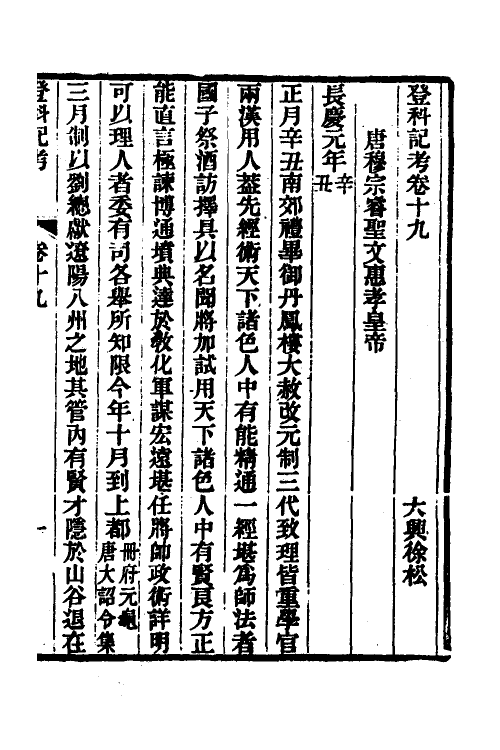 登科記考卷十九
大興徐松
唐穆宗睿聖文惠孝皇帝
長慶元年辛丑
正月辛丑南郊禮畢御丹鳳樓大赦改元制三代致理皆重學官
兩漢用人蓋先經術天下諸色人中有能精通一經堪爲師法者
國子祭酒訪擇具以名聞將加試用天下諸色人中有賢良方正
能直言極諫博通墳典達於敎化軍謀宏遠堪任將帥政術詳明
可以理人者委有司各舉所知限今年十月到上都冊府元龜唐大詔令集
三月制以劉總獻遼陽八州之地其管內有賢才隱於山谷退在
登科記考
卷十九
一